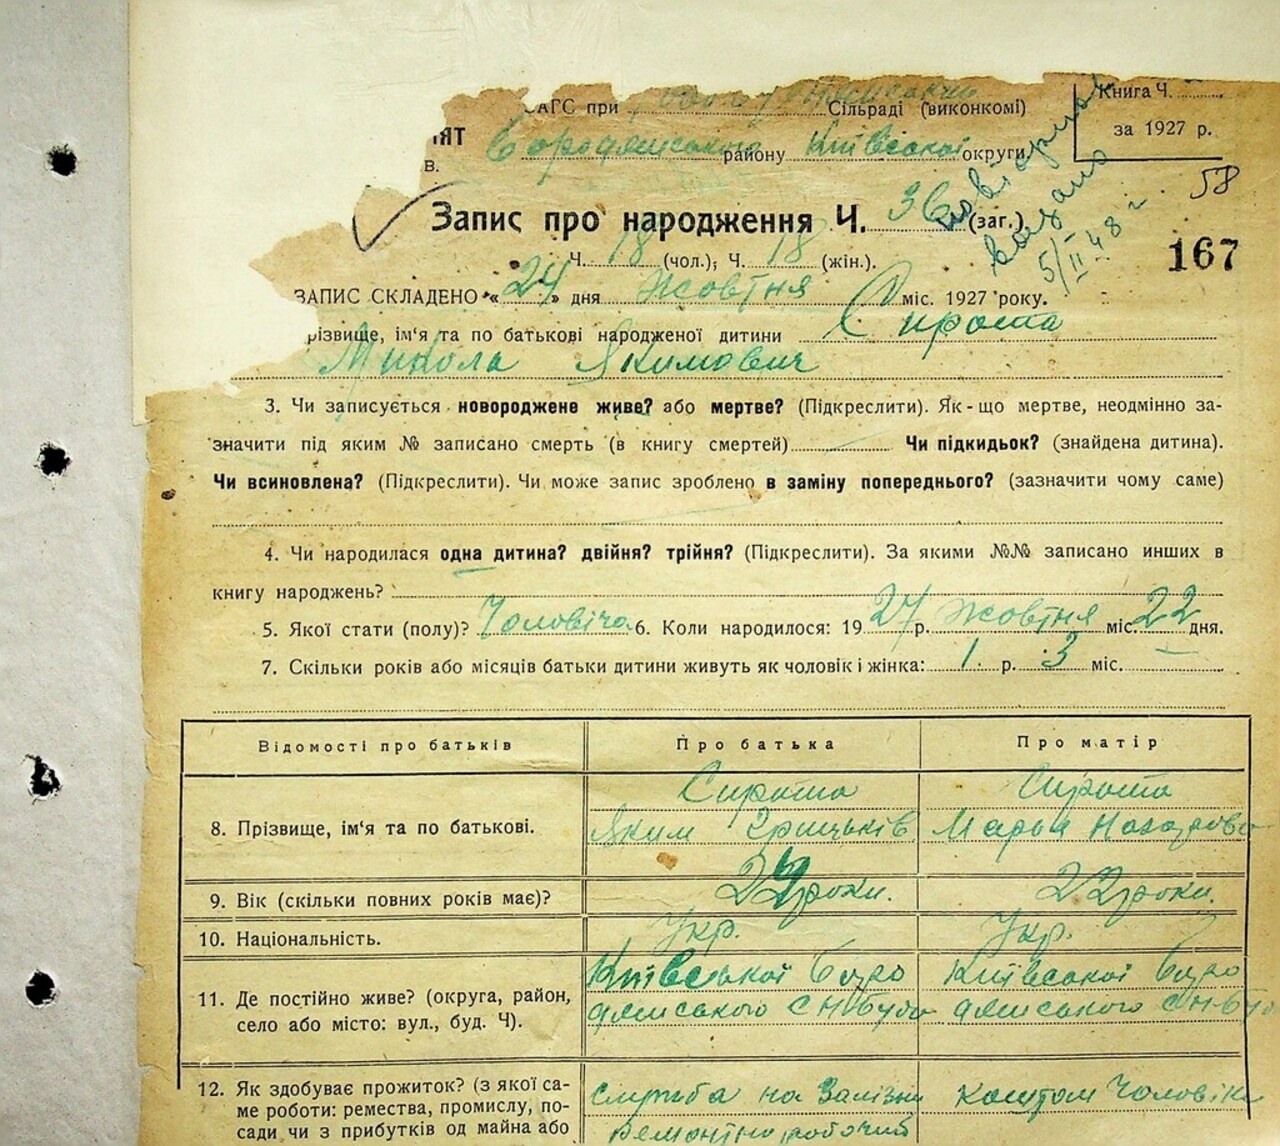 АГС при Сільраді (виконкомі)
Книга Ч.
за 1927 р.
ЯТ
в.
Бородянського району Київської округи
повторно
видано
5/II 48 г
58
Запис про народження Ч. 36 (заг.)
167
Ч. 18 (чол.); Ч. 18 (жін.).
ЗАПИС СКЛАДЕНО «24» дня Жовтня міс. 1927 року.
різвище, ім'я та по батькові народженої дитини Сирота
Микола Якимович
3. Чи записується новороджене живе? або мертве? (Підкреслити). Як-що мертве, неодмінно за-
значити під яким № записано смерть (в книгу смертей) Чи підкидьок? (знайдена дитина).
Чи всиновлена? (Підкреслити). Чи може запис зроблено в заміну попереднього? (зазначити чому саме)
4. Чи народилася одна дитина? двійня? трійня? (Підкреслити). За якими №№ записано инших в
книгу народжень?
5. Якої стати (полу)? Чоловіча 6. Коли народилося: 1927 р. Жовтня міс. 22 дня.
7. Скільки років або місяців батьки дитини живуть як чоловік і жінка: 1 р. 3 міс.
Відомості про батьків Про батька Про матір
Сирота Сирота
8. Прізвище, ім'я та по батькові. Яким Грицьків Марья Назарова
9. Вік (скільки повних років має)? роки. 22 роки.
10. Національність. Укр. Укр.
Київської Бородянського Київської Бородянського
11. Де постійно живе? (округа, район,
село або місто: вул., буд. Ч).
12. Як здобуває прожиток? (з якої са- Служба на Залізни Коштом Чоловіка
ме роботи: ремества, промислу, по-
сади чи з прибутків од майна або Ремонтно робочий